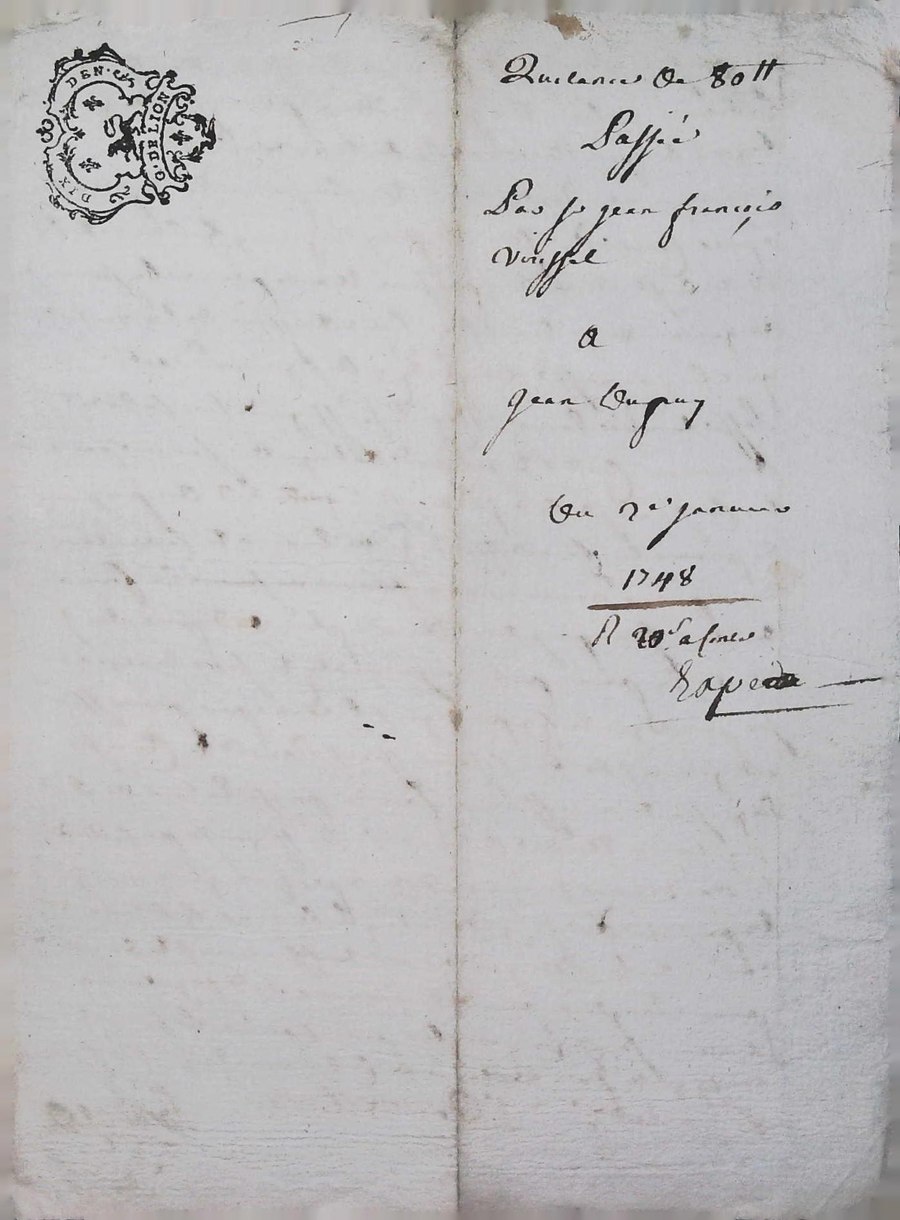 DIX DEN.
G. DE LION
Quittance de 80 tt
Passée
Par Sr jean françois
Viressel
a
jean Dupuy
Du 2e janvier
1748
R 20s